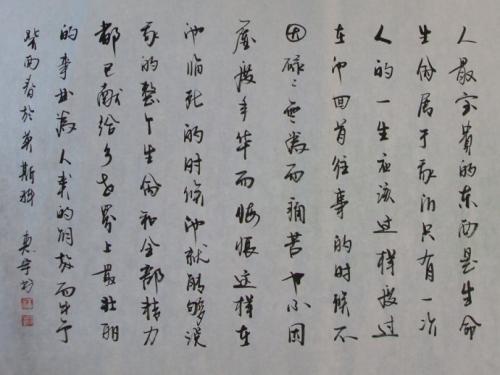 人最宝貴的东西是生命
生命属于我们只有一次
人的一生应该这样度过
在他回首往事的时候不
因碌々無为而痛苦也不因
虚度年华而悔恨这样在
他临死的时候他就能够说
我的整个生命和全部精力
都已献给了世界上最壮丽
的事业为人类的解放而斗争
癸酉春於莫斯科